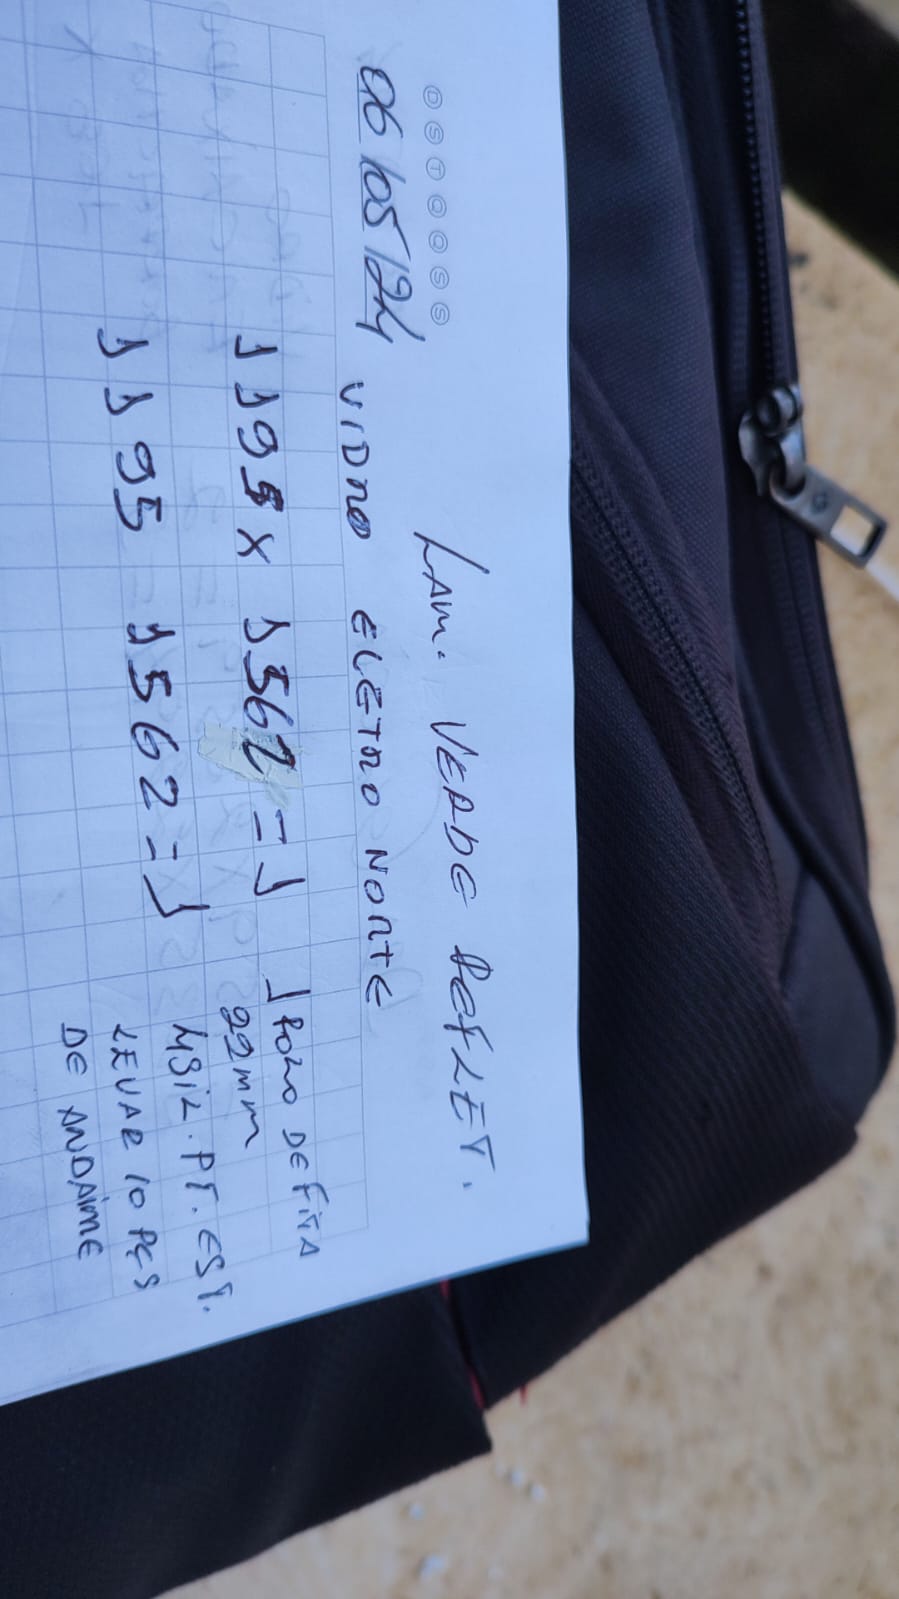 D S T Q Q S S
LAM. VERDE REFLET.
06/05/24 VIDRO ELETRO NORTE
1195 x 1562 = 1
1 ROLO DE FITA
22mm
1195 = 1562 = 1
4SIL. PT. EST.
LEVAR 10 PÇS
DE ANDAIME